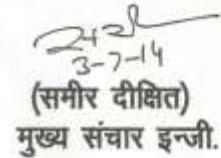 3-7-14
(समीर दीक्षित)
मुख्य संचार इन्जी.